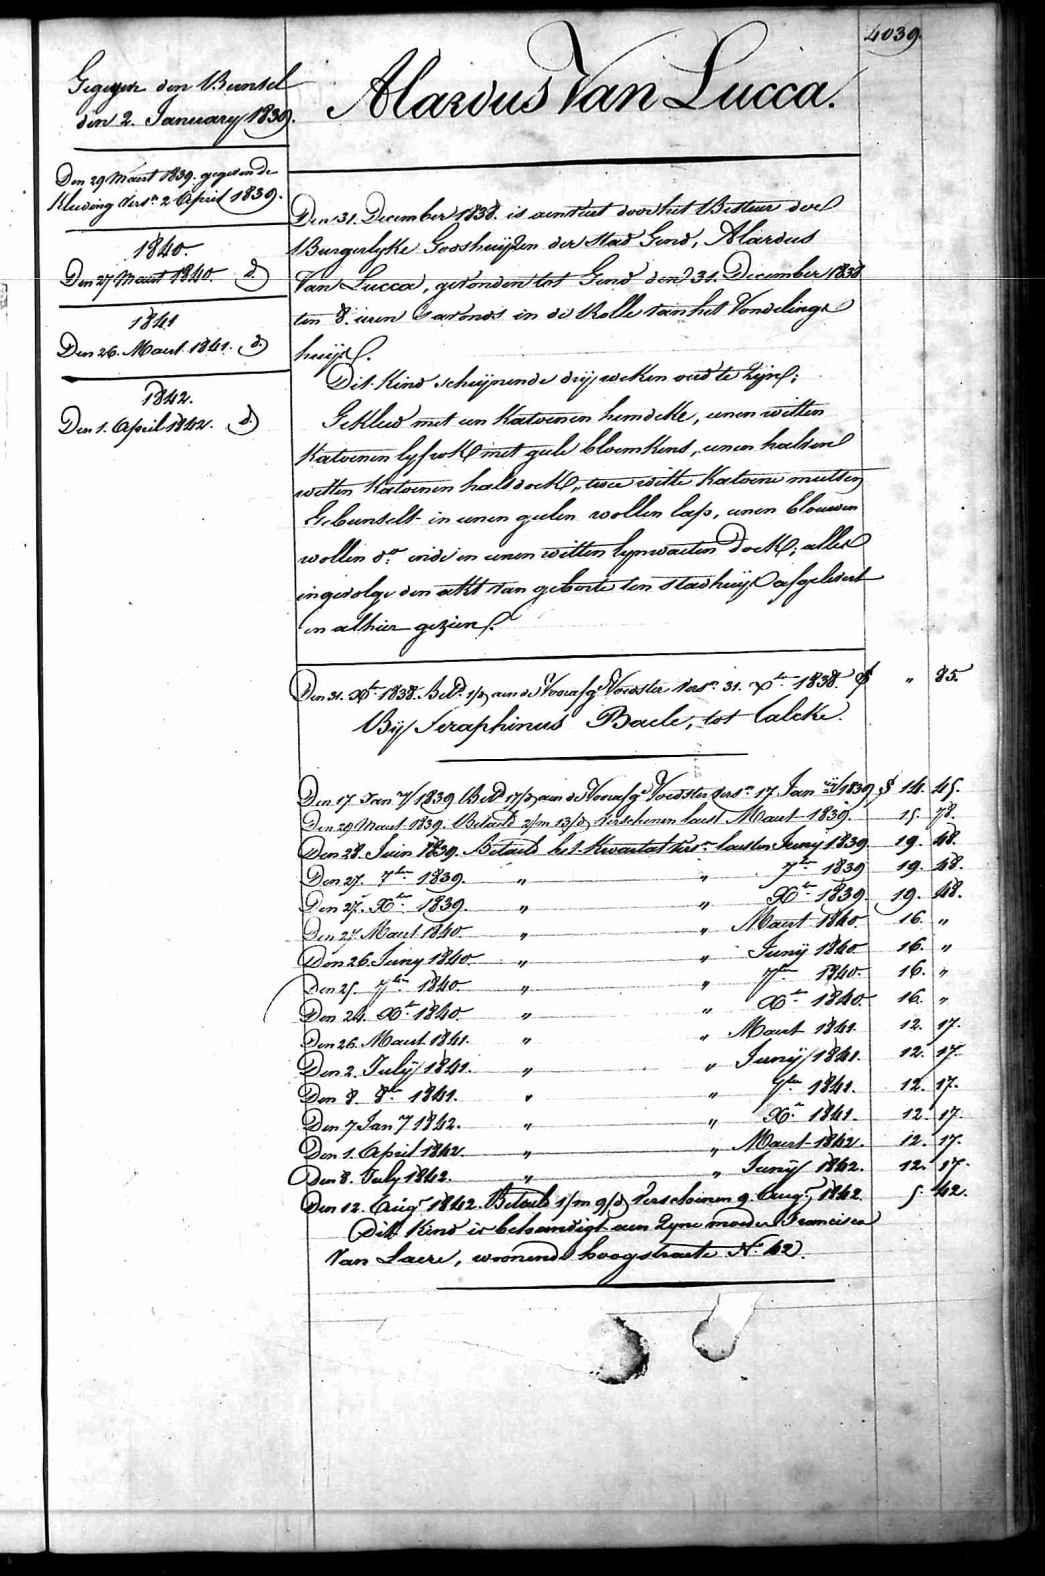 4039
Alardus Van Lucca.
Gegeven den Bunsel
den 2. January 1839.
Den 29 Maert 1839. gegeven de
Kleeding vers.n 2 April 1839.
1840.
Den 27 Maert 1840. d.
1841
Den 26. Maert 1841. d.
1842.
Den 1. April 1842. d.
Den 31. December 1838. is aenveert door het Bestuer der
Burgerlyke Godshuyzen der Stad Gend, Alardus
Van Lucca, gevonden tot Gend den 31. December 1838
ten 8. uren s'avonds in de Rolle van het Vondelings
huys.
Dit Kind schynende dry weken oud te zyn;
Gekleed met een Katoenen hemdeke, eenen witten
Katoenen lyfrok met geele bloemkens, eenen halven
witten Katoenen halsdoek, twee witte Katoene mutsen
Gebunselt in eenen geelen wollen lap, eenen blauwen
wollen d.o ende in eenen witten lynwaeten Doek; alles
ingevolge den akt van geboorte ten stadhuyse afgelevert
en alhier gezien.
Den 31. Xber 1838. Bet.d 1/d aen de Voorafg.e Voedster vers.n 31. Xber 1838. " 85.
By Seraphinus Baele, tot Calcke.
Den 17 Jan.y 1839 Bet.d 17/d aen de Voorafg.e Voedster vers.n 17 Jan.y 1839 14. 45.
Den 29 Maert 1839. Betaeld 2/m 13/d Verschenen laest Maert 1839. 15. 78.
Den 28. Juin 1839. Betaeld het Kwartael vers.n laesten Juny 1839 19. 48.
Den 27. 7ber 1839. " " 7ber 1839 19. 48.
Den 27. Xber 1839. " " Xber 1839 19. 48.
Den 27 Maert 1840 " " Maert 1840. 16. "
Den 26. Juny 1840. " " Juny 1840 16. "
Den 25. 7ber 1840. " " 7ber 1840. 16. "
Den 24. Xber 1840. " " Xber 1840 16. "
Den 26. Maert 1841. " " Maert 1841. 12. 17.
Den 2. July 1841. " " Juny 1841. 12. 17.
Den 8. 8ber 1841. " " 7ber 1841. 12. 17.
Den 7 Jan.y 1842. " " Xber 1841. 12. 17
Den 1. April 1842. " " Maert 1842. 12. 17.
Den 8. July 1842. " " Juny 1842. 12. 17.
Den 12. Aug.t 1842. Betaeld 1/m 9/d Verschenen 9. Aug.t 1842. 5. 42.
Dit Kind is behandigt aen Zyne moeder Francisca
Van Laere, woonende hoogstraete N.o 42.